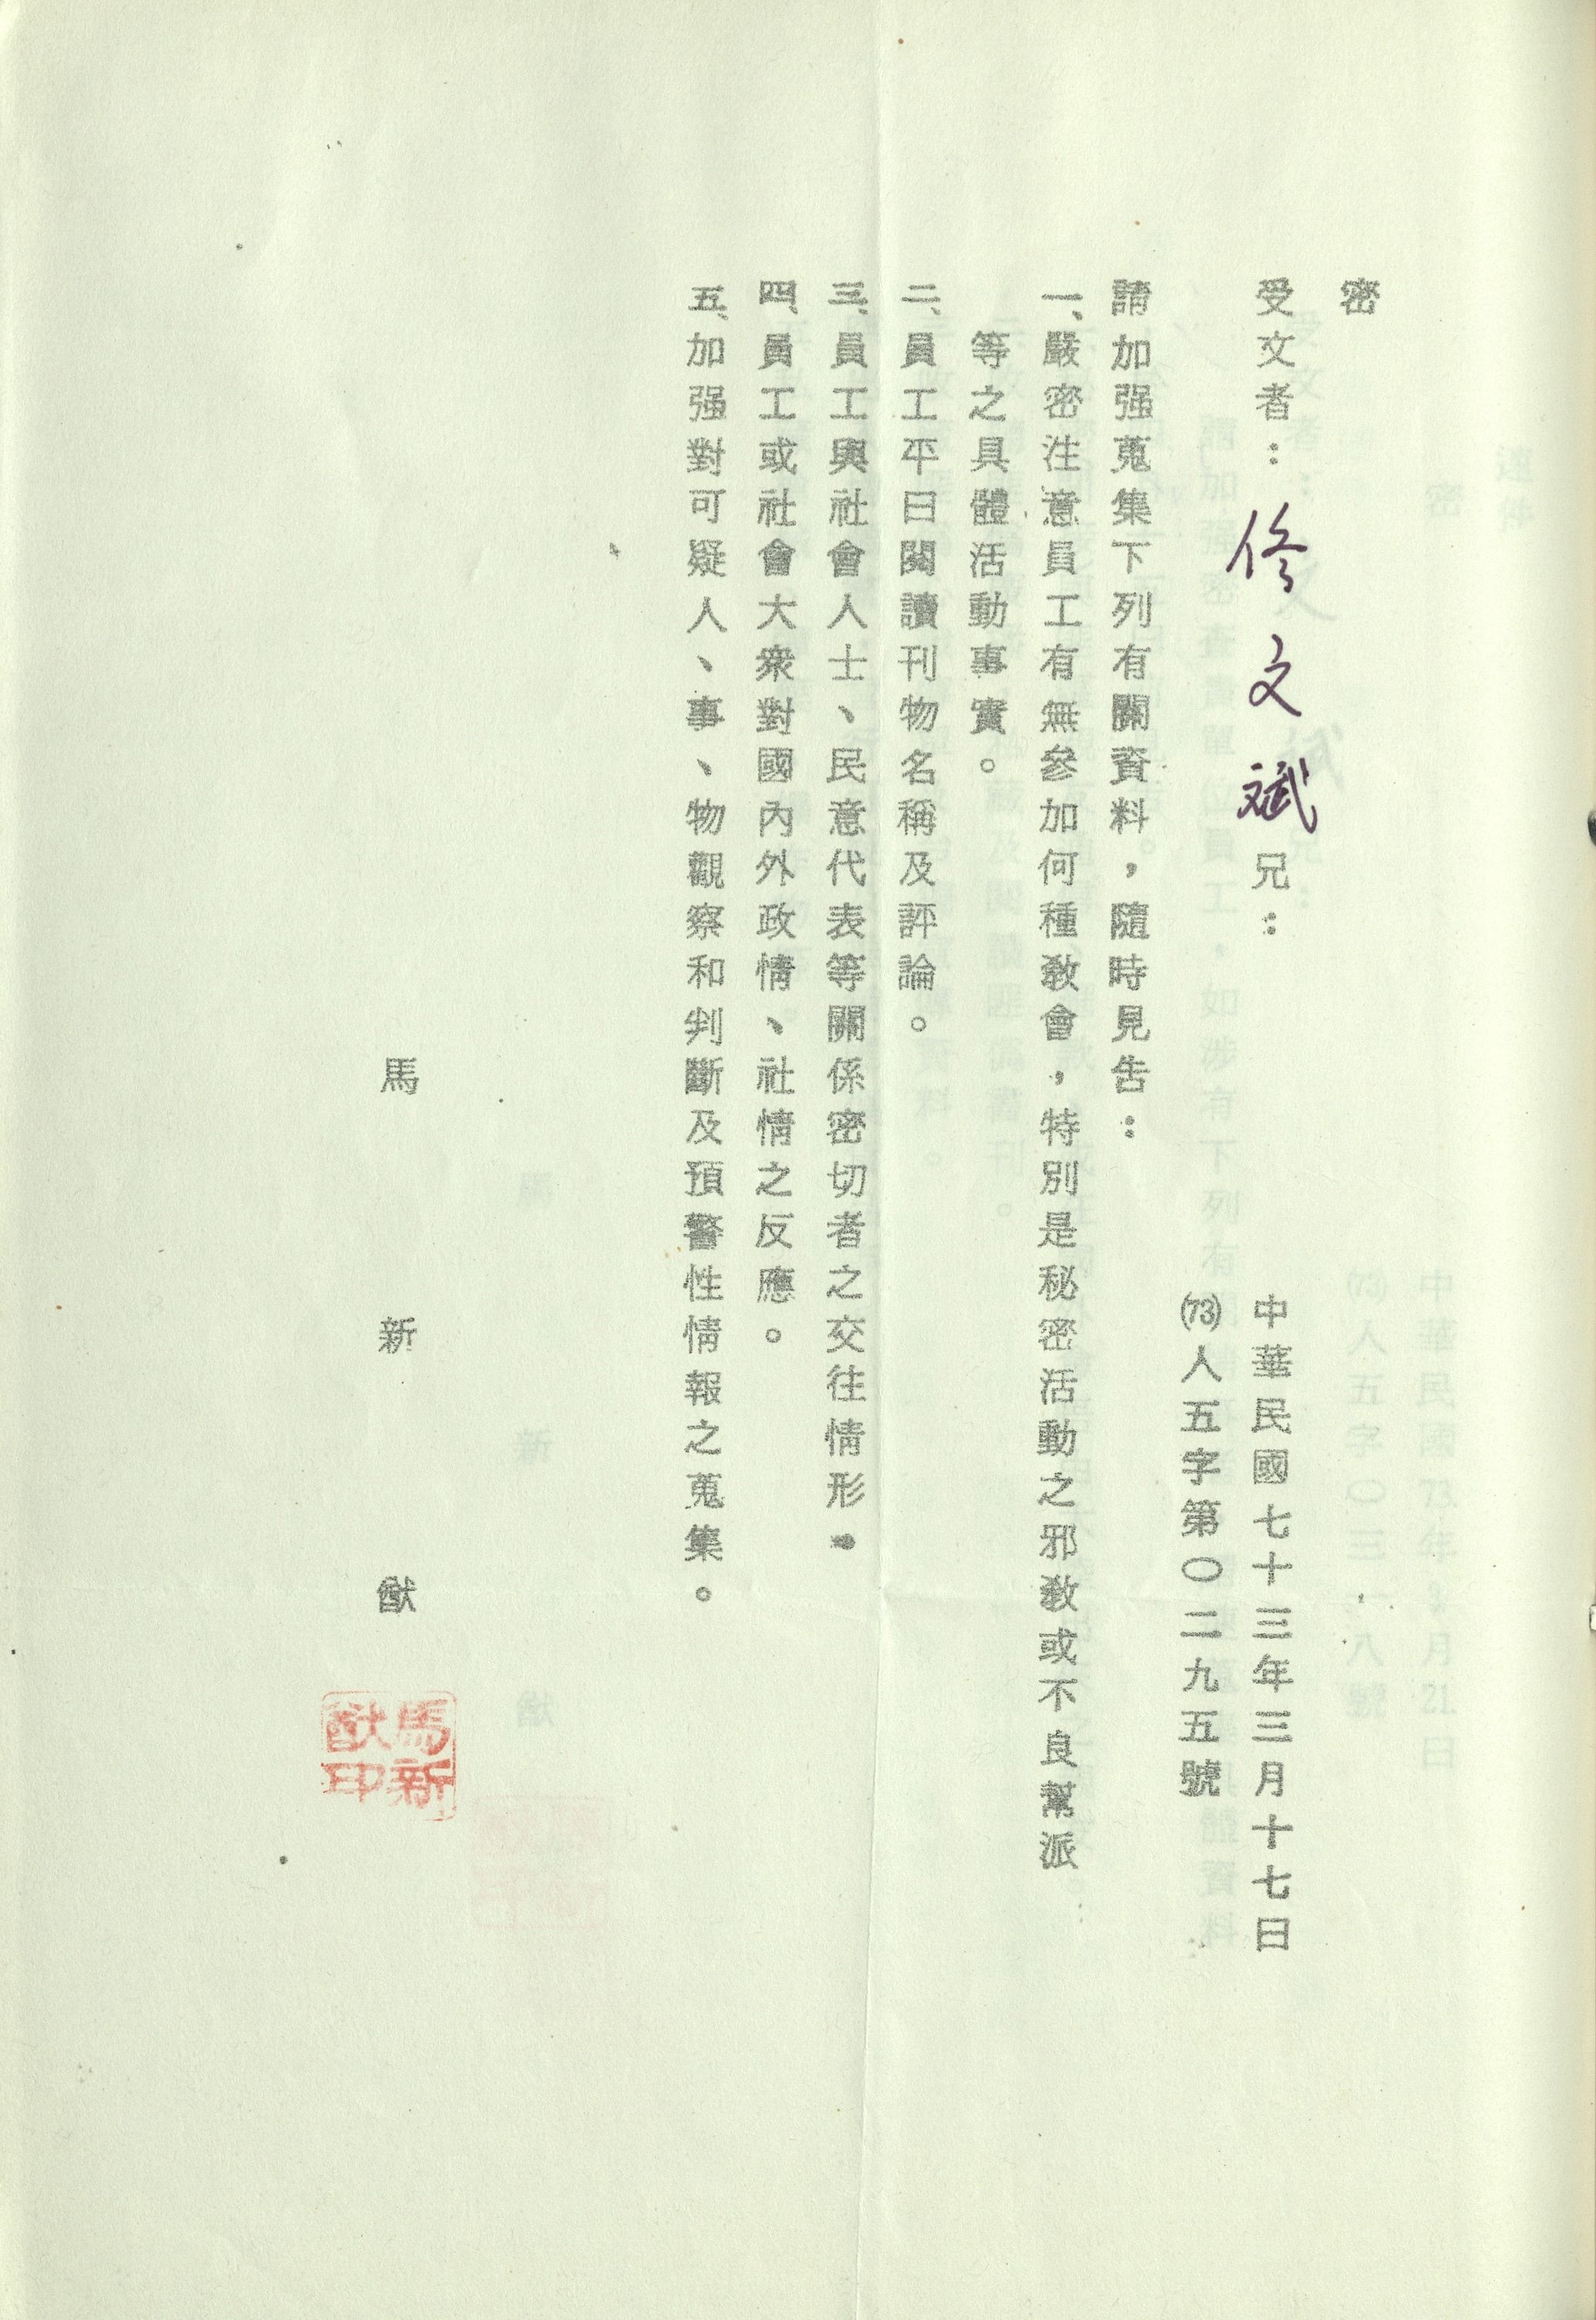 密
受文者：佟文斌兄：
中華民國七十三年三月十七日
(73)人五字第〇二九五號
請加强蒐集下列有關資料，隨時見告：
一、嚴密注意員工有無參加何種教會，特別是秘密活動之邪教或不良幫派
等之具體活動事實。
二、員工平日閱讀刊物名稱及評論。
三、員工與社會人士、民意代表等關係密切者之交往情形。
四、員工或社會大衆對國內外政情、社情之反應。
五、加强對可疑人、事、物觀察和判斷及預警性情報之蒐集。
馬新猷
馬新
猷印